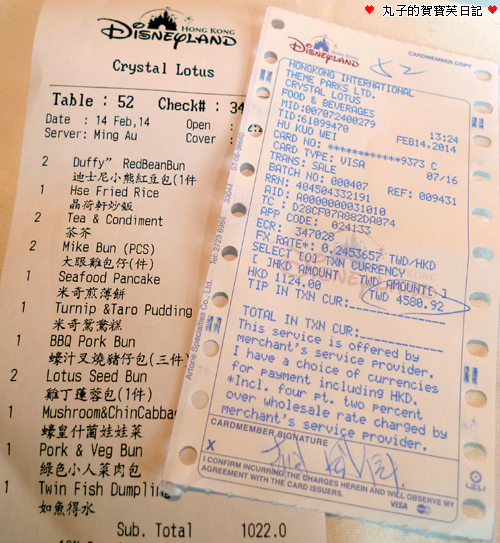 ♥ 丸子的賀寶芙日記 ♥
HONG KONG
DISNEYLAND
Crystal Lotus
Table : 52 Check# : 34
Date : 14 Feb,14 Open :
Server: Ming Au Cover :
2 Duffy" RedBeanBun
迪士尼小熊紅豆包(1件
1 Hse Fried Rice
晶荷軒炒飯
2 Tea & Condiment
茶芥
2 Mike Bun (PCS)
大眼雞包仔(件)
1 Seafood Pancake
米奇煎薄餅
1 Turnip &Taro Pudding
米奇鴛鴦糕
1 BBQ Pork Bun
蠔汁叉燒豬仔包(三件)
2 Lotus Seed Bun
雞丁蓮蓉包(1件)
1 Mushroom&ChinCabbag
蠔皇什菌娃娃菜
1 Pork & Veg Bun
綠色小人菜肉包
1 Twin Fish Dumpling
如魚得水
Sub. Total 1022.0
Artone Specialties Co., Ltd. Tel:2723 6986
CARDMEMBER COPY
HONG KONG
DISNEYLAND
HONGKONG INTERNATIONAL
THEME PARKS LTD.
CRYSTAL LOTUS
FOOD & BEVERAGES
MID:007072400279
TID:61099470 13:24
HU KUO WEI FEB14,2014
CARD NO: ************9373 C
CARD TYPE: VISA 07/16
TRANS: SALE
BATCH NO: 000407 REF: 009431
RRN: 404504332191
AID: A0000000031010
TC : D28CF07A882DA074
APP CODE: 024133
ECR: 347028
FX RATE*: 0.2453657 TWD/HKD
SELECT [√] TXN CURRENCY
[ ]HKD AMOUNT TWD AMOUNT[ ]
HKD 1124.00 TWD 4580.92
TIP IN TXN CUR:
TOTAL IN TXN CUR:
This service is offered by
Merchant's service provider.
I have a choice of currencies
for payment including HKD.
*Incl. four pt. two percent
over wholesale rate charged by
Merchant's service provider.
CARDMEMBER SIGNATURE
X
I CONFIRM INCURRING THE CHARGES HEREIN AND WILL OBSERVE MY
AGREEMENT WITH THE CARD ISSUERS.
VISA